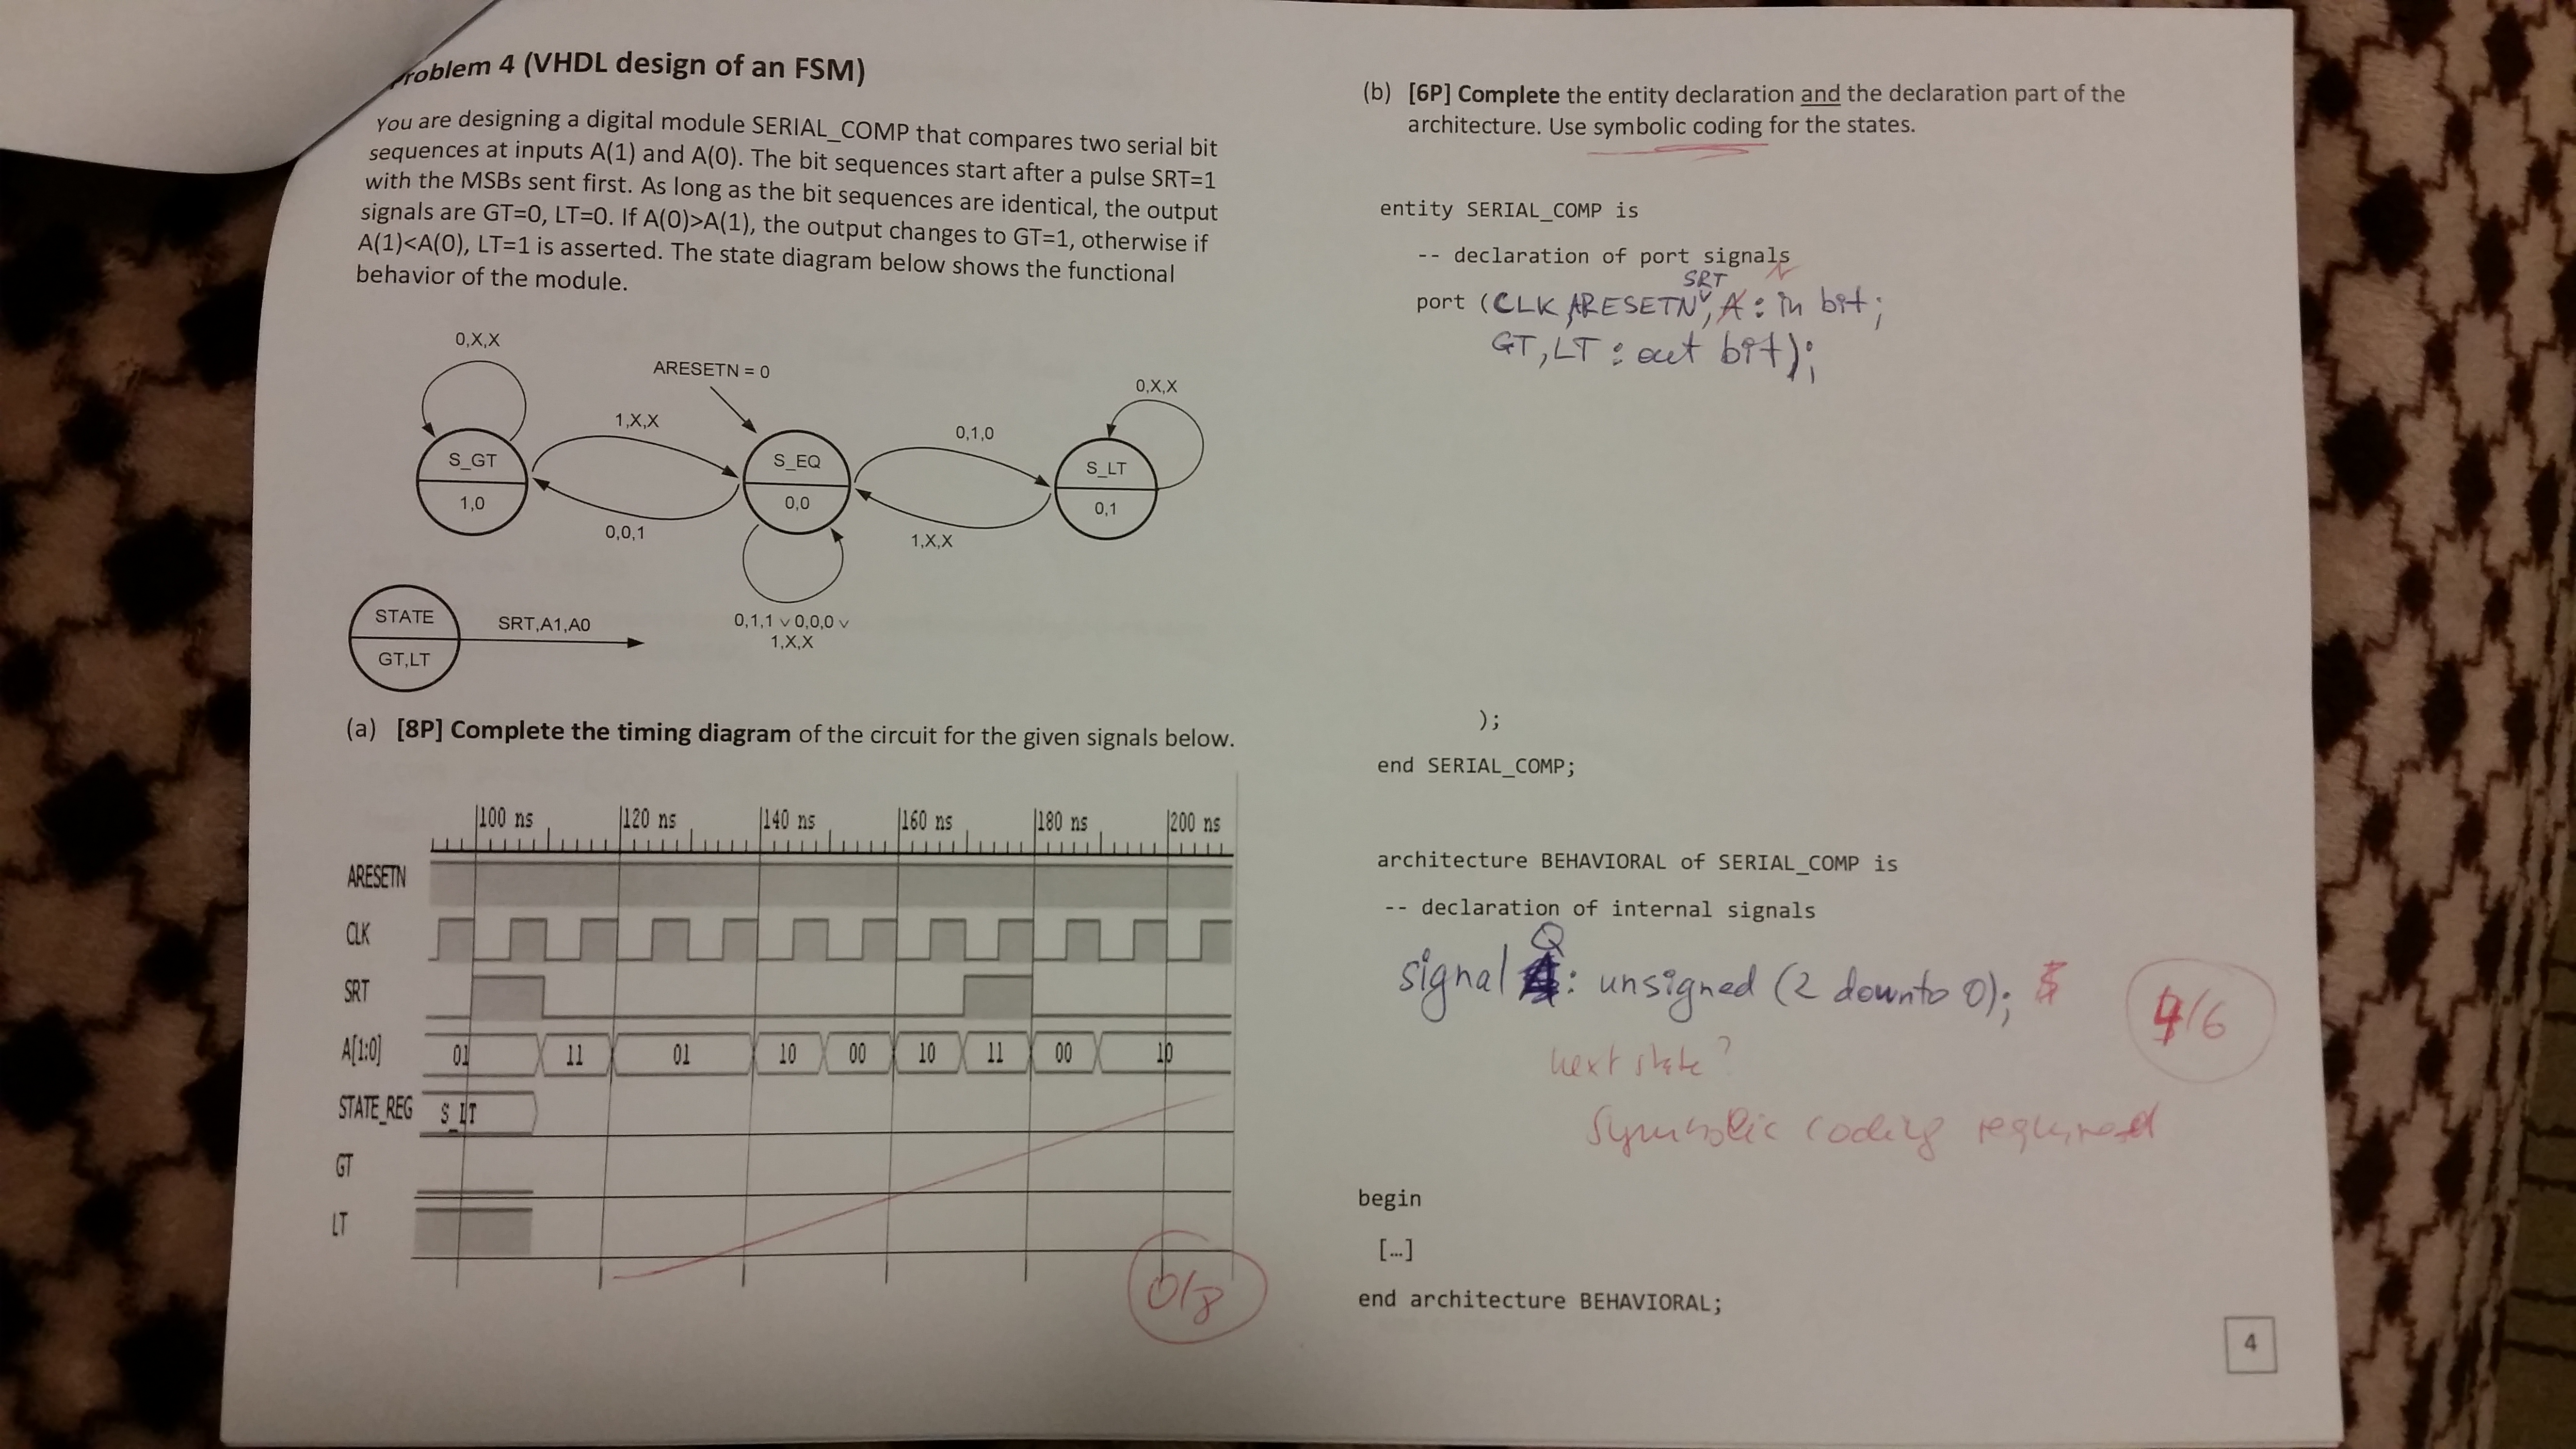 Problem 4 (VHDL design of an FSM)
You are designing a digital module SERIAL_COMP that compares two serial bit
sequences at inputs A(1) and A(0). The bit sequences start after a pulse SRT=1
with the MSBs sent first. As long as the bit sequences are identical, the output
signals are GT=0, LT=0. If A(0)>A(1), the output changes to GT=1, otherwise if
A(1)<A(0), LT=1 is asserted. The state diagram below shows the functional
behavior of the module.
0,X,X
ARESETN = 0
0,X,X
1,X,X
0,1,0
S_GT
1,0
S_EQ
0,0
S_LT
0,1
0,0,1
1,X,X
0,1,1 ∨ 0,0,0 ∨
1,X,X
STATE
GT,LT
SRT,A1,A0
(a) [8P] Complete the timing diagram of the circuit for the given signals below.
100 ns 120 ns 140 ns 160 ns 180 ns 200 ns
ARESETN
CLK
SRT
A[1:0] 01 11 01 10 00 10 11 00 10
STATE_REG S_LT
GT
LT
0/8
(b) [6P] Complete the entity declaration and the declaration part of the
architecture. Use symbolic coding for the states.
entity SERIAL_COMP is
-- declaration of port signals
SRT
port (CLK, ARESETN, A : in bit;
GT, LT : out bit);
);
end SERIAL_COMP;
architecture BEHAVIORAL of SERIAL_COMP is
-- declaration of internal signals
Q
signal : unsigned (2 downto 0);
4/6
next state?
Symbolic coding required
begin
[...]
end architecture BEHAVIORAL;
4